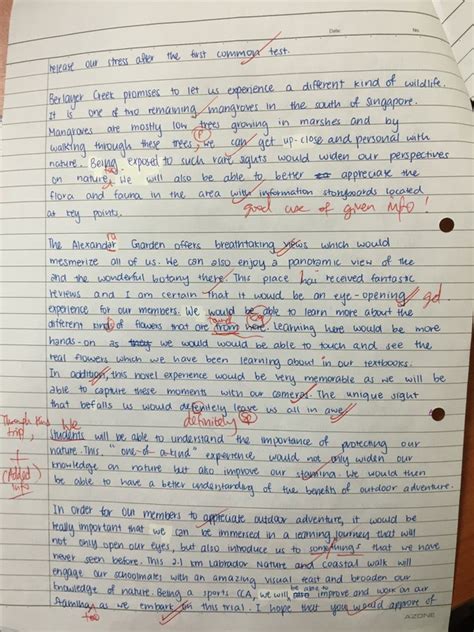 Date: No.
release our stress after the first common test.
Berlayer Creek promises to let us experience a different kind of wildlife.
It is one of two remaining mangroves in the south of Singapore.
Mangroves are mostly low trees growing in marshes and by
P
walking through these trees, we can get up-close and personal with
nature. Being exposed to such rare sights would widen our perspectives
on nature. We will also be able to better appreciate the
flora and fauna in the area with information storyboards located
at key points. good use of given info!
ra
The Alexandar Garden offers breathtaking views which would
mesmerize all of us. We can also enjoy a panoramic view of the
and the wonderful botany there. This place has received fantastic
reviews and I am certain that it would be an eye-opening gd.
experience for our members. We would be able to learn more about the
different kind of flowers that are from here. Learning here would be more
hands-on as we would would be able to touch and see the
real flowers which we have been learning about in our textbooks.
In addition, this novel experience would be very memorable as we will be
able to capture these moments with our cameras. The unique sight
that befalls us would defenitely leave us all in awe.
definitely Sp
Through this trip, we
students will be able to understand the importance of protecting our
nature. This "one-of a-kind" experience would not only widen our
(Added info)
knowledge on nature but also improve our stamina. We would then
be able to have a better understanding of the benefit of outdoor adventure.
In order for our members to appreciate outdoor adventure, it would be
really important that we can be immersed in a learning journey that will
not only open our eyes, but also introduce us to somethings that we have
never seen before. This 2.1 km Labrador Nature and coastal walk will
engage our schoolmates with an amazing visual feast and broaden our
knowledge of nature. Being a sports CCA, we will be able to improve and maintain our
stamina too as we embark on this trial. I hope that you would approve of
too
AZONE